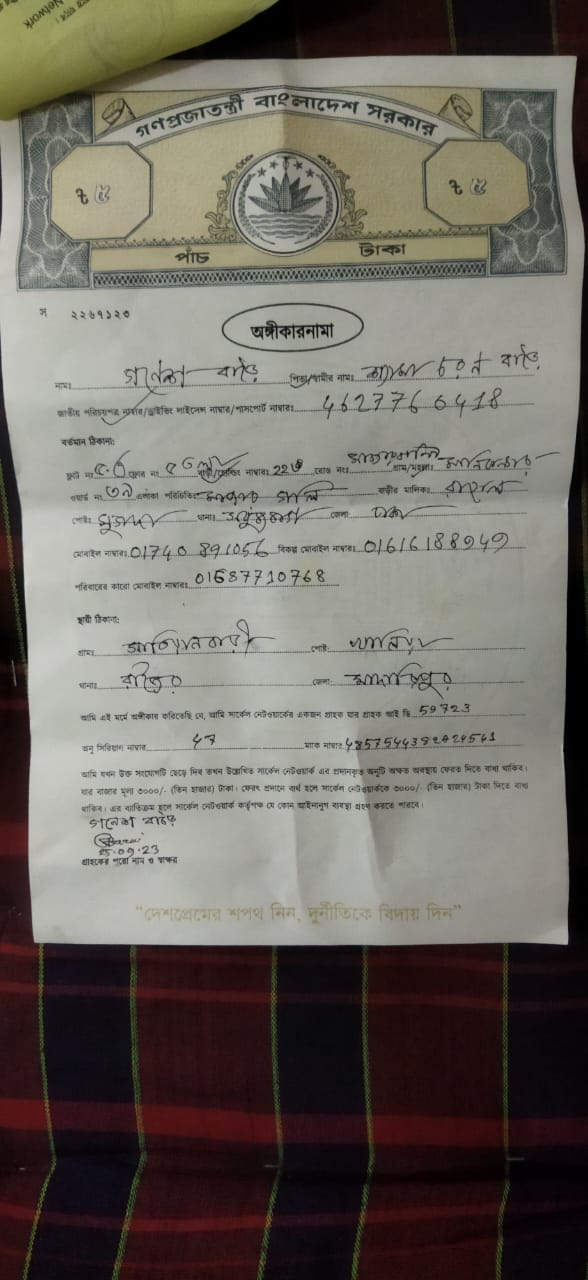 Network
গণপ্রজাতন্ত্রী বাংলাদেশ সরকার
৳ ৫ ৳ ৫
পাঁচ টাকা
স ২২৬৭১২৩
অঙ্গীকারনামা
নামঃ গনেশ বাড়ৈ পিতা/স্বামীর নামঃ চরন বাড়ৈ
জাতীয় পরিচয়পত্র নাম্বার/ড্রাইভিং লাইসেন্স নাম্বার/পাসপোর্ট নাম্বারঃ 4627766418
বর্তমান ঠিকানা:
ফ্ল্যাট নং ফ্লোর নং বাড়ী/হোল্ডিং নাম্বারঃ রোড নংঃ গ্রাম/মহল্লাঃ
ওয়ার্ড নং এলাকা পরিচিতিঃ গলি বাড়ীর মালিকঃ
পোষ্টঃ থানাঃ জেলাঃ ঢাকা
মোবাইল নাম্বারঃ 01740 891056 বিকল্প মোবাইল নাম্বারঃ 01616188949
পরিবারের কারো মোবাইল নাম্বারঃ 01687710768
স্থায়ী ঠিকানা:
গ্রামঃ পোষ্টঃ
থানাঃ রাজৈর জেলাঃ মাদারিপুর
আমি এই মর্মে অঙ্গীকার করিতেছি যে, আমি সার্কেল নেটওয়ার্কের একজন গ্রাহক যার গ্রাহক আই ডি 59723
অনু সিরিয়াল নাম্বার 47 ম্যাক নাম্বার
আমি যখন উক্ত সংযোগটি ছেড়ে দিব তখন উল্লেখিত সার্কেল নেটওয়ার্ক এর প্রদানকৃত অনুটি অক্ষত অবস্থায় ফেরত দিতে বাধ্য থাকিব।
যার বাজার মূল্য ৩০০০/- (তিন হাজার) টাকা। ফেরৎ প্রদানে ব্যর্থ হলে সার্কেল নেটওয়ার্ককে ৩০০০/- (তিন হাজার) টাকা দিতে বাধ্য
থাকিব। এর ব্যতিক্রম হলে সার্কেল নেটওয়ার্ক কর্তৃপক্ষ যে কোন আইনানুগ ব্যবস্থা গ্রহন করতে পারবে।
গনেশ বাড়ৈ
25.09.23
গ্রাহকের পুরো নাম ও স্বাক্ষর
“দেশপ্রেমের শপথ নিন, দুর্নীতিকে বিদায় দিন”